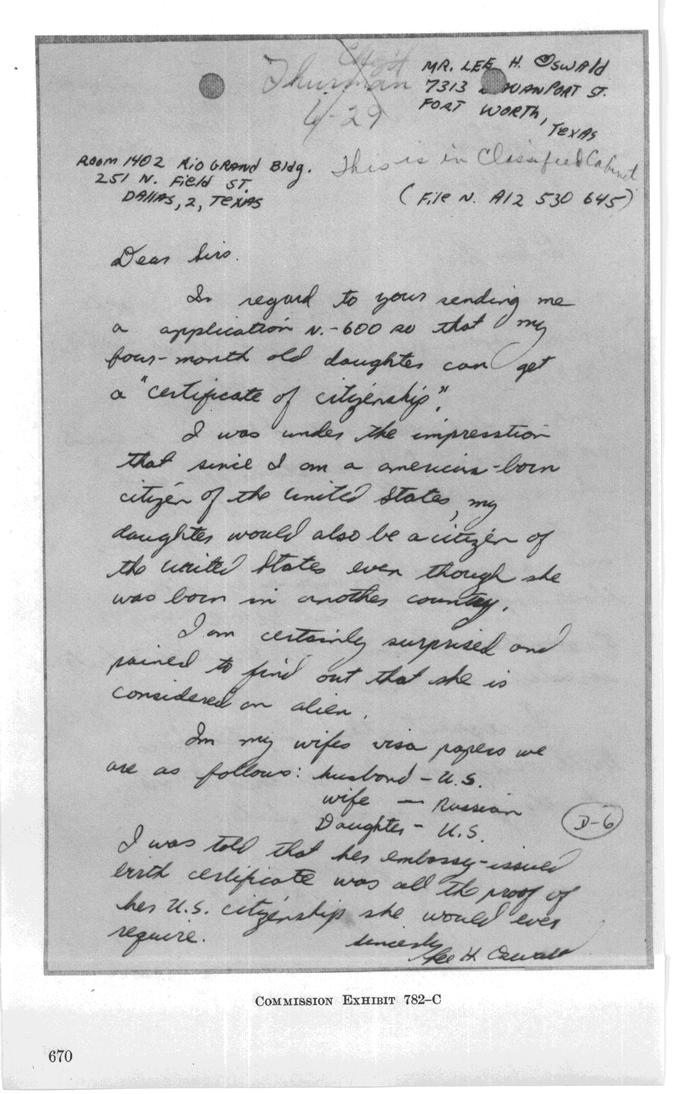 Thurman
6-29
MR. LEE H. OSWALD
7313 DAVANPORT ST.
FORT WORTH,
TEXAS
ROOM 1402 RIO GRAND Bldg.
251 N. Field ST.
DALLAS, 2, TEXAS
This is in Classified Cabinet
(File N. A12 530 645)
Dear Sirs.
In regard to your sending me
a application N.-600 so that my
four-month old daughter can get
a "certificate of citizenship".
I was under the impresstion
that since I am a american-born
citizen of the united States, my
daughter would also be a citizen of
the united States even though she
was born in another country.
I am certainly surprised and
pained to find out that she is
considered an alien.
In my wifes visa papers we
are as follows: husband - U.S.
wife - Russian
Daughter - U.S.
D-6
I was told that her embassy-issued
birth certificate was all the proof of
her U.S. citizenship she would ever
require.
sincerly
Lee H. Oswald
COMMISSION EXHIBIT 782–C
670